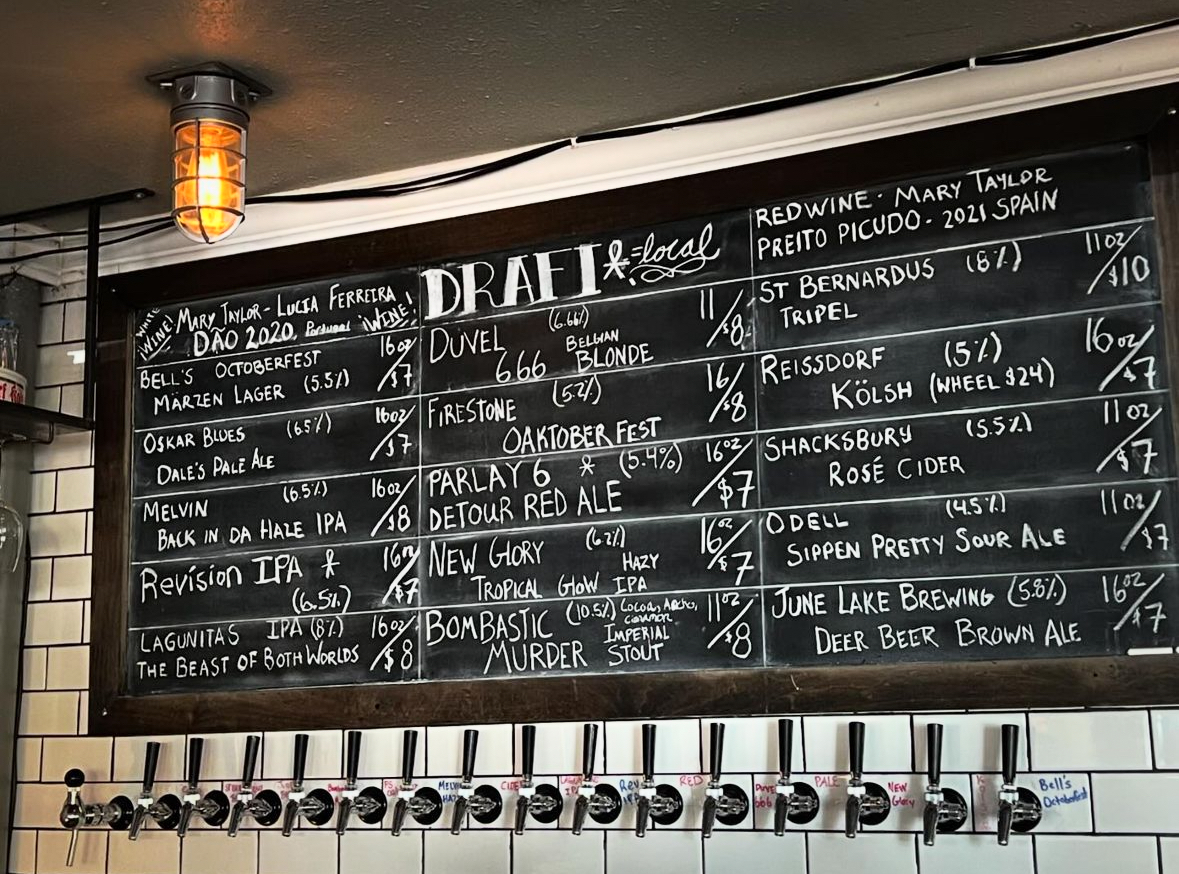 WHITE WINE! MARY TAYLOR - LUCIA FERREIRA WINE!
DÃO 2020. Portugal
BELL'S OCTOBERFEST 16oz
MÄRZEN LAGER (5.5%) $7
OSKAR BLUES (6.5%) 16oz
DALE'S PALE ALE $7
MELVIN (6.5%) 16oz
BACK IN DA HAZE IPA $8
Revision IPA * 16oz
(6.5%) $7
LAGUNITAS IPA (8%) 16oz
THE BEAST OF BOTH WORLDS $8
DRAFT * = local
DUVEL (6.66%) 11
666 BELGIAN BLONDE $8
FIRESTONE (5.2%) 16
OAKTOBERFEST $8
PARLAY 6 * (5.4%) 16oz
DETOUR RED ALE $7
NEW GLORY (6.2%) HAZY 16oz
TROPICAL GLOW IPA $7
BOMBASTIC (10.5%) Cocoa, Ancho, cinnamon 11oz
MURDER IMPERIAL STOUT $8
RED WINE - MARY TAYLOR
PREITO PICUDO - 2021 SPAIN
ST BERNARDUS (8%) 11oz
TRIPEL $10
REISSDORF (5%) 16oz
KÖLSH (WHEEL $24) $7
SHACKSBURY (5.5%) 11oz
ROSÉ CIDER $7
ODELL (4.5%) 11oz
SIPPEN PRETTY SOUR ALE $7
JUNE LAKE BREWING (5.8%) 16oz
DEER BEER BROWN ALE $7
MELVIN
HAZE
CIDER
LAGUNITAS
IPA
Rev
IPA
RED
666
PALE
New
Glory
Bell's
Octoberfest